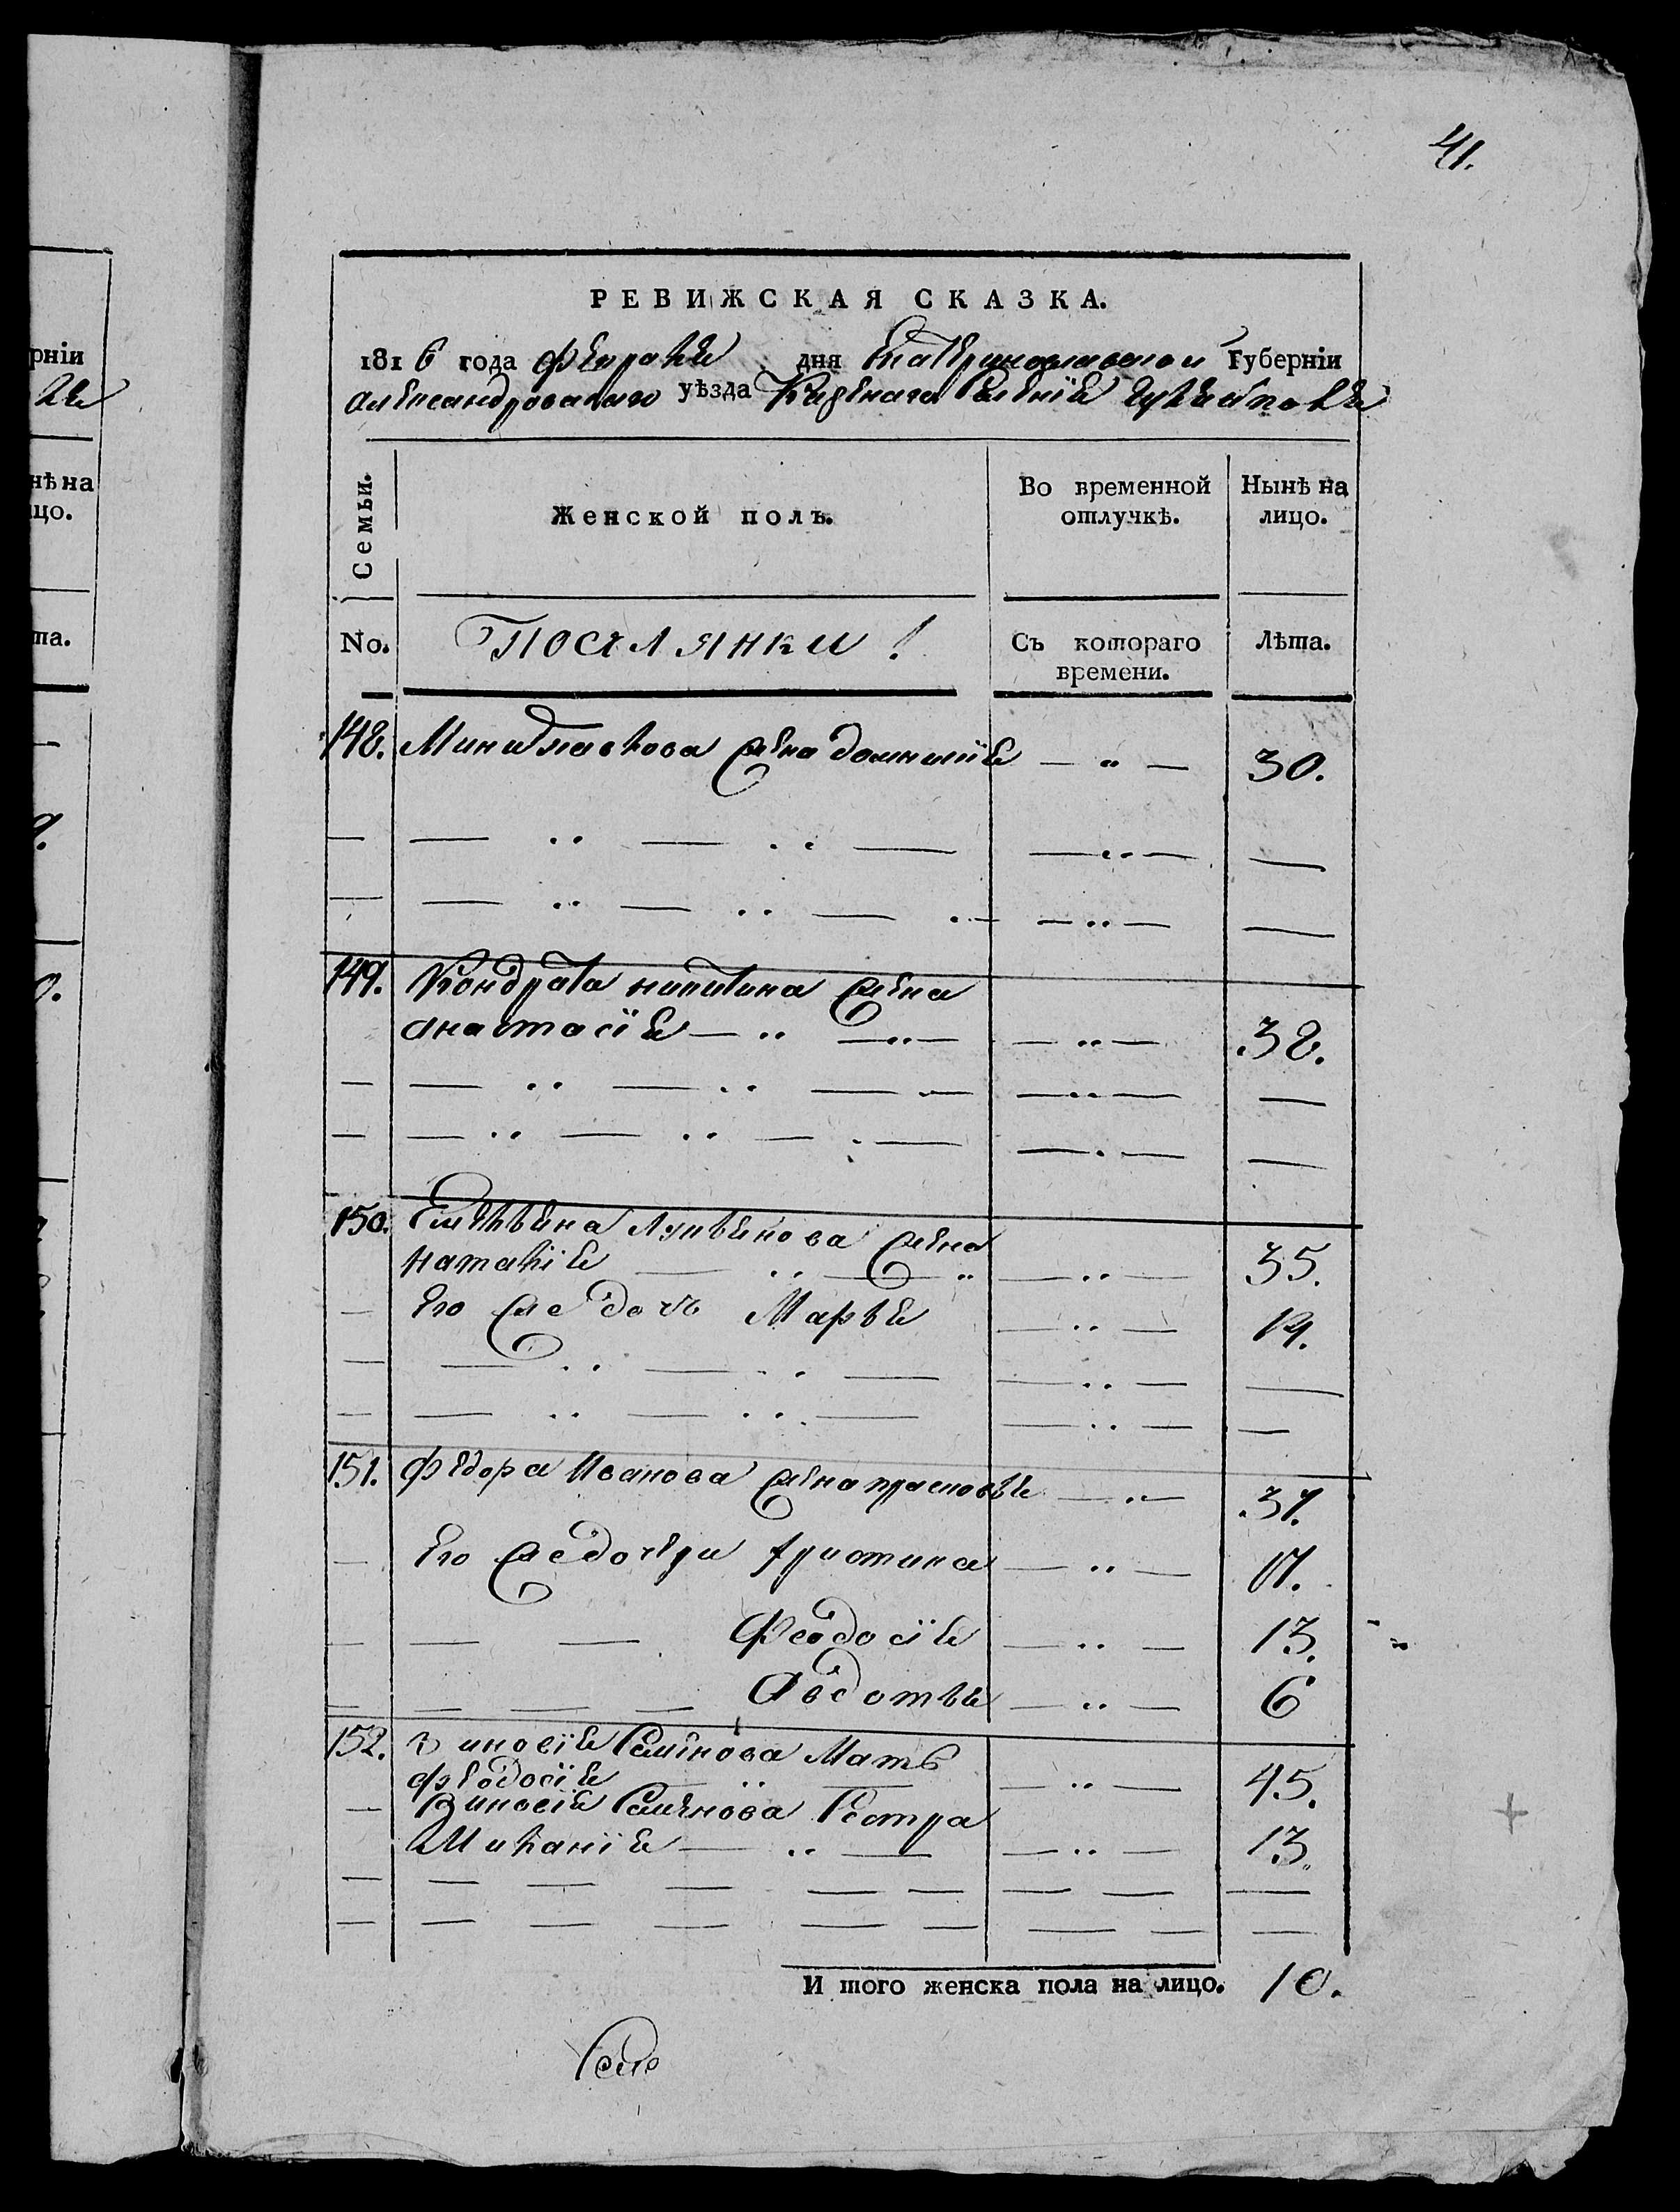 рніи
ля
нѣ на
цо.
та.
9.
0.
41.
РЕВИЖСКАЯ СКАЗКА.
1816 года февраля дня Екатеринославской Губерніи
Александровскаго уѣзда Казеннаго Селенія
Семьи.
Женской полъ.
Во временной отлучкѣ.
Нынѣ на лицо.
No.
Поселянки
Съ котораго времени.
Лѣта.
148. Мины Павлова жена Домникія — „ — 30.
149. Кондрата Никитина жена
Анастасія — „ — „ — — „ — 38.
150. Емельяна Лукьянова жена
Наталія — „ — „ — „ — 35.
Его жъ дочь Марья — „ — 19.
151. Федора Иванова жена Прасковья — „ — 37.
Его жъ дочери Христина — „ — 17.
Феодосія — „ — 13.
Авдотья — „ — 6
152. Зиновія Семенова Мать
Феодосія — „ — 45.
Зиновія Семенова Сестра
Миланія — „ — — „ — 13.
И того женска пола на лицо. 10.